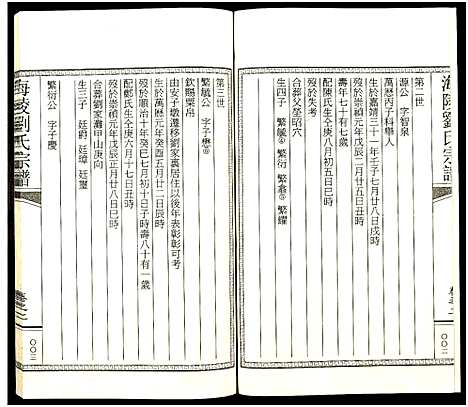 海陵劉氏宗譜
卷之二
〇〇二
第二世
源公 字智泉
萬歷丙子科舉人
生於嘉靖三十一年子七月廿八日戌時
歿於崇禎元年戊辰二月廿五日丑時
壽年七十有七歲
配陳氏生仝庚八月初五日巳時
歿於失考
合葬父塋昭穴
生四子 繁毓 繁衍 繁翕 繁耀
第三世
繁毓公 字子懋
欽賜粟帛
由安子墩遷移劉家裏居住以後年表彰彰可考
生於萬歷元年癸酉五月廿二日辰時
歿於順治十年癸巳七月初十日子時壽八十有一歲
配鄭氏生仝庚六月初七日丑時
歿於崇禎元年戊辰正月廿八日巳時
合葬劉家灘甲山庚向
生三子 廷爵 廷璋 廷璽
繁衍公 字子慶
海陵劉氏宗譜
卷之二
〇〇三